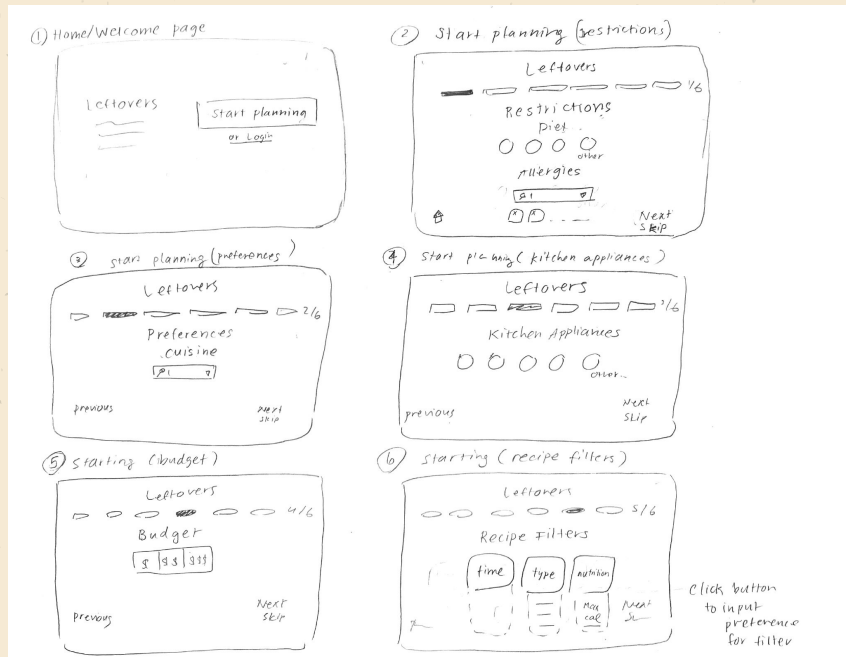 ① Home/Welcome page
Leftovers
Start planning
or Login
② Start planning (restrictions)
Leftovers
1/6
Restrictions
Diet
other
Allergies
Next
Skip
③ start planning (preferences)
Leftovers
2/6
Preferences
Cuisine
previous
Next
Skip
④ Start planning (kitchen appliances)
Leftovers
3/6
Kitchen Appliances
other
previous
Next
Skip
⑤ Starting (budget)
Leftovers
4/6
Budget
$ $$ $$$
Previous
Next
Skip
⑥ Starting (recipe filters)
Leftovers
5/6
Recipe Filters
time type nutrition
Max
cal
Next
Click button
to input
preference
for filter